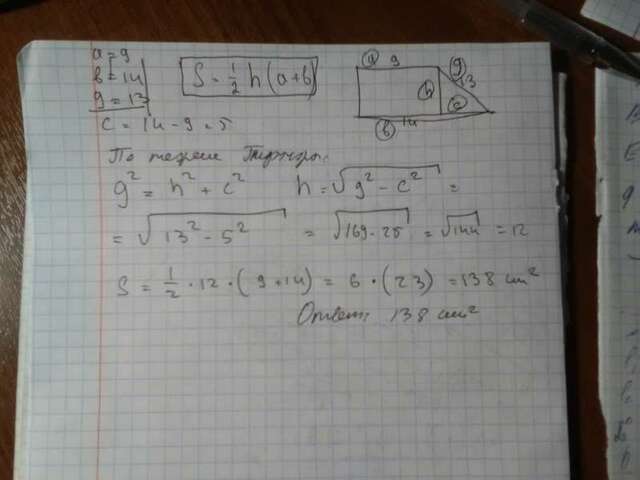 a = 9
b = 14
g = 13
c = 14 - 9 = 5
S = 1/2 h (a + b)
a 9 g 13
h c
b 14
По теореме Пифагора:
g² = h² + c² h = √g² - c² =
= √13² - 5² = √169 - 25 = √144 = 12
S = 1/2 · 12 · (9 + 14) = 6 · (23) = 138 см²
Ответ: 138 см²